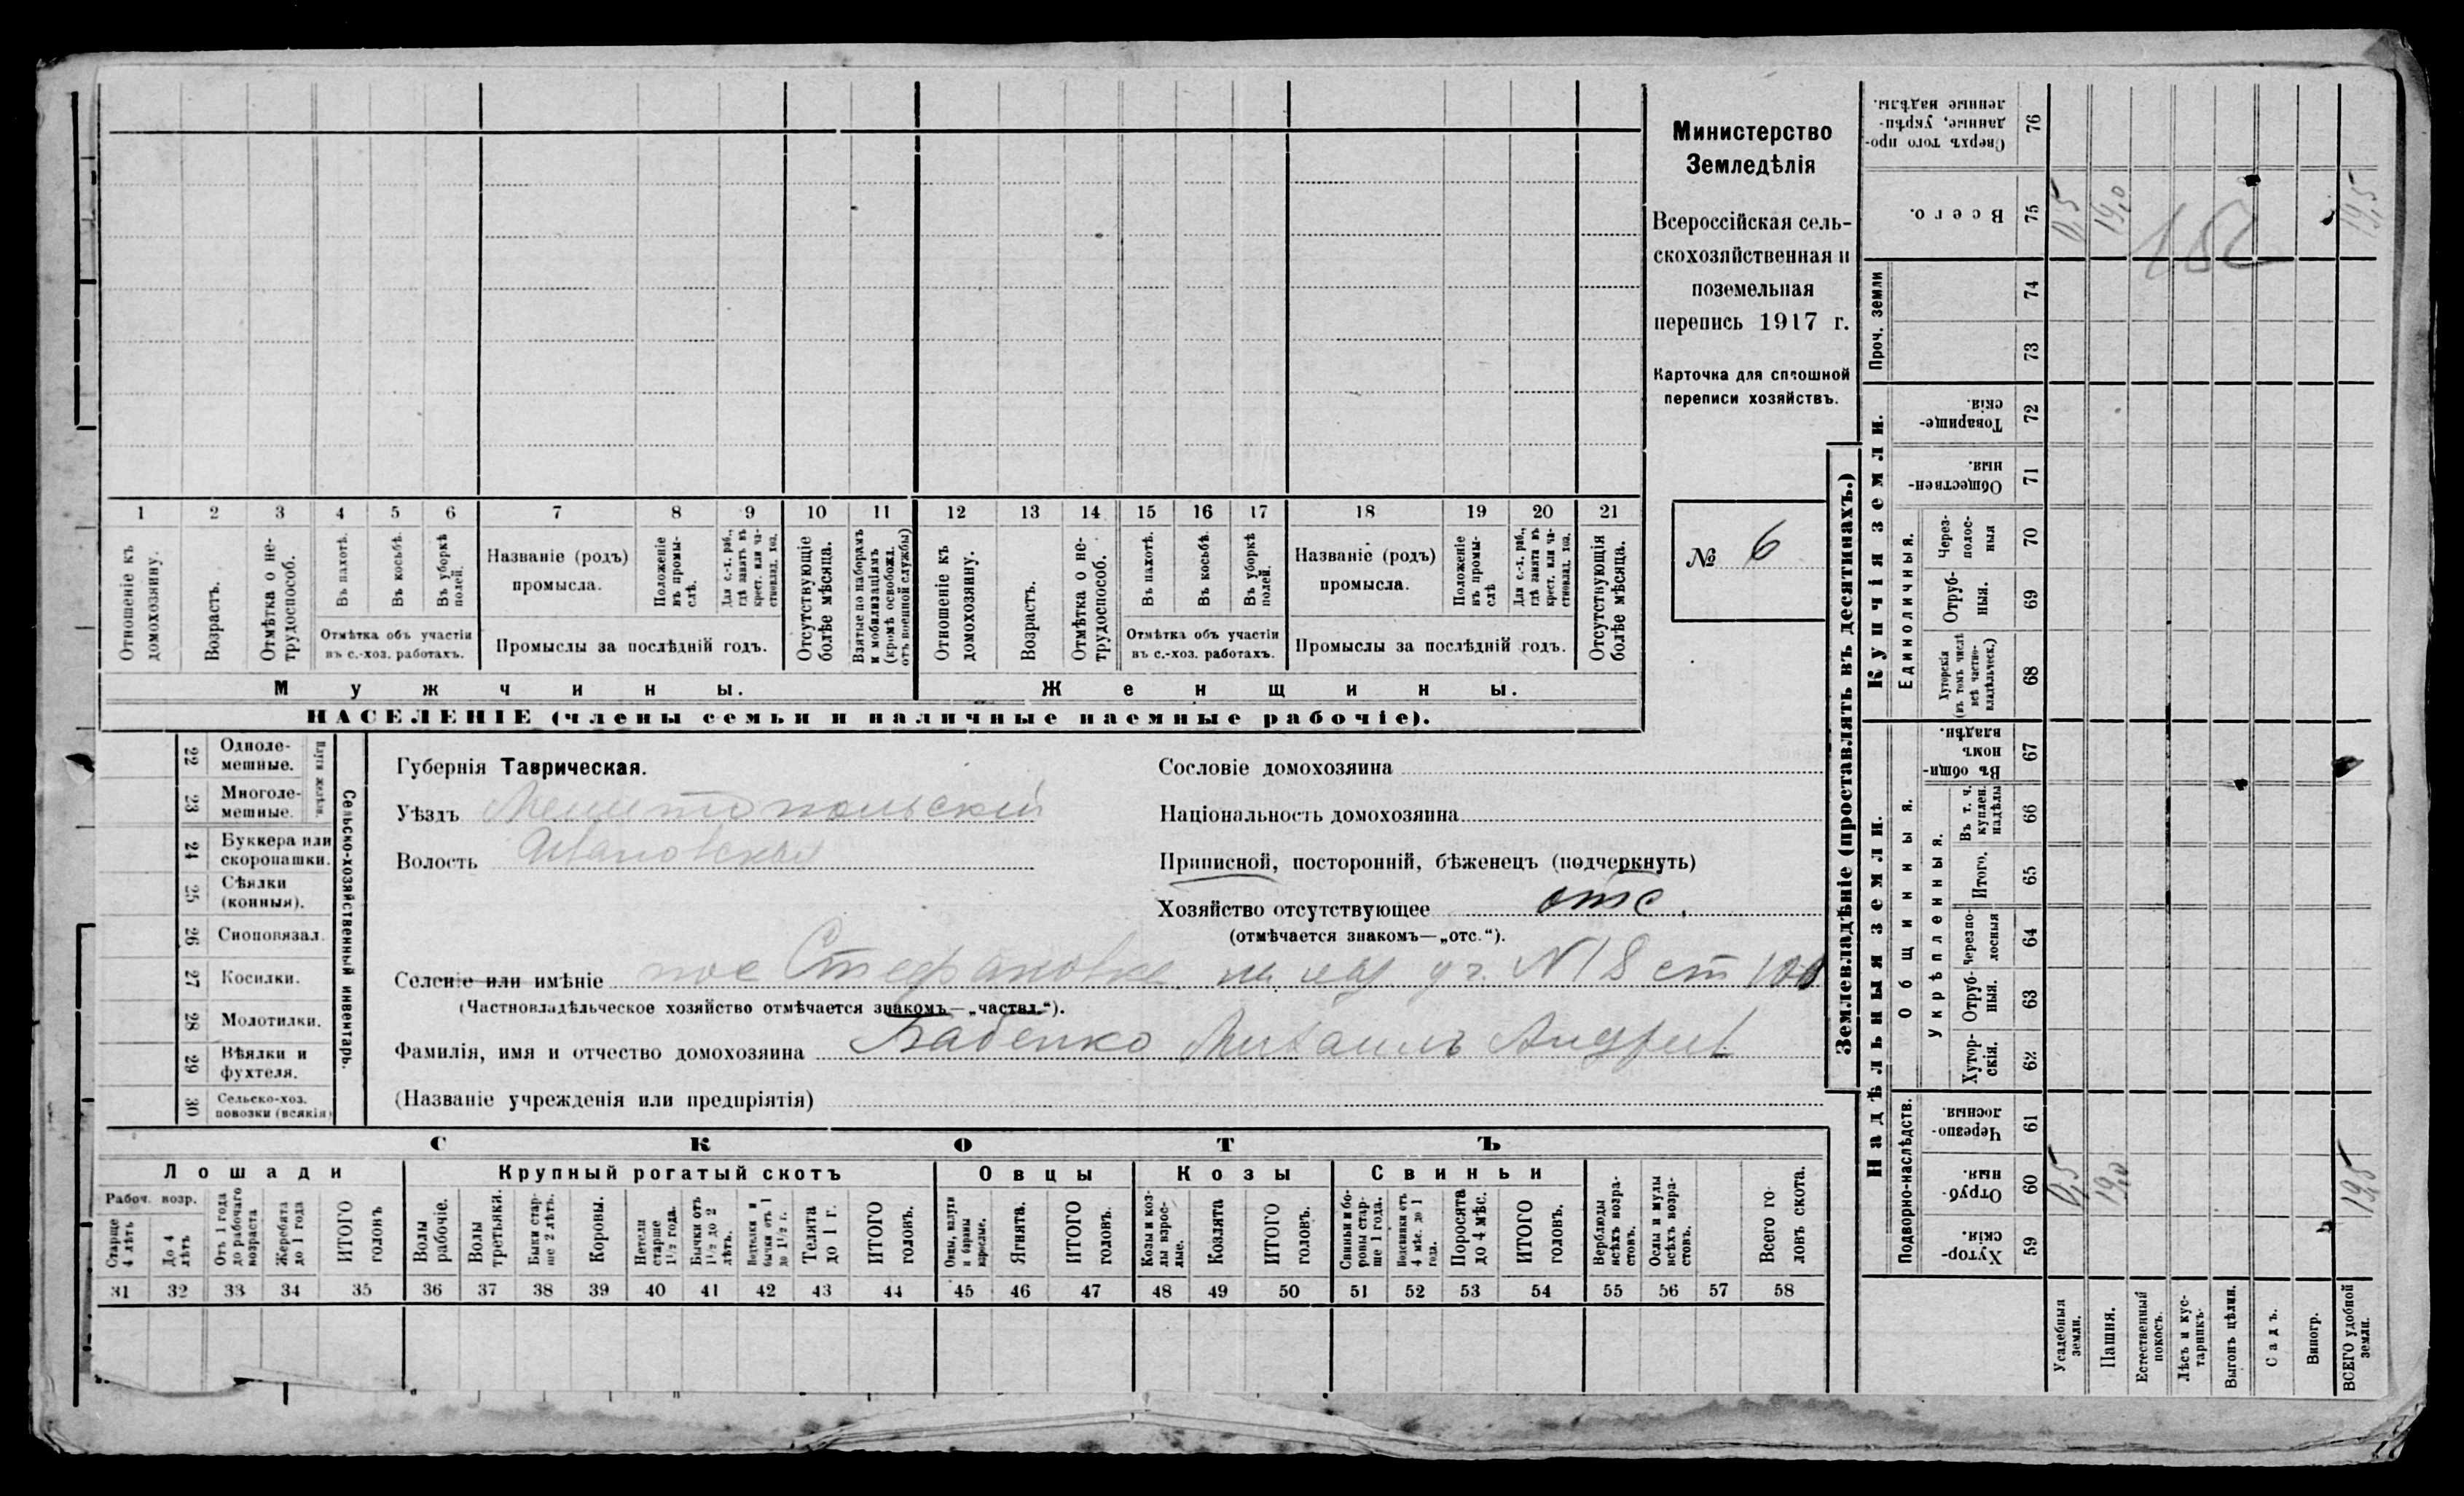 Министерство
Земледѣлія
Всероссійская сель-
скохозяйственная и
поземельная
перепись 1917 г.
Карточка для сплошной
переписи хозяйствъ.
№ 6
1 2 3 4 5 6 7 8 9 10 11 12 13 14 15 16 17 18 19 20 21
Отношеніе къ домохозяину.
Возрастъ.
Отмѣтка о не-трудоспособ.
Въ пахотѣ.
Въ косьбѣ.
Въ уборкѣ полей.
Отмѣтка объ участіи
въ с.-хоз. работахъ.
Названіе (родъ)
промысла.
Положеніе въ промы-слѣ.
Для с.-х. раб., гдѣ занятъ въ крест. или ча-стновлад. хоз.
Промыслы за послѣдній годъ.
Отсутствующіе болѣе мѣсяца.
Взятые по наборамъ и мобилизаціямъ (кромѣ освобожд. отъ военной службы)
Отношеніе къ домохозяину.
Возрастъ.
Отмѣтка о не-трудоспособ.
Въ пахотѣ.
Въ косьбѣ.
Въ уборкѣ полей.
Отмѣтка объ участіи
въ с.-хоз. работахъ.
Названіе (родъ)
промысла.
Положеніе въ промы-слѣ
Для с.-х. раб., гдѣ занята въ крест. или ча-стновлад. хоз.
Промыслы за послѣдній годъ.
Отсутствующія болѣе мѣсяца.
Мужчины. Женщины.
НАСЕЛЕНІЕ (члены семьи и наличные наемные рабочіе).
Сельско-хозяйственный инвентарь.
Плуги желѣзн.
22 Одноле-мешные.
23 Многоле-мешные.
24 Буккера или скоропашки.
25 Сѣялки (конныя).
26 Сноповязал.
27 Косилки.
28 Молотилки.
29 Вѣялки и фухтеля.
30 Сельско-хоз. повозки (всякія)
Губернія Таврическая.
Уѣздъ Мелитопольскій
Волость Ивановская
Сословіе домохозяина
Національность домохозяина
Приписной, посторонній, бѣженецъ (подчеркнуть)
Хозяйство отсутствующее отс.
(отмѣчается знакомъ—„отс.“).
Селеніе или имѣніе пос Стефановка на уч. N 18 ст 100
(Частновладѣльческое хозяйство отмѣчается знакомъ—„частвл.“).
Фамилія, имя и отчество домохозяина Бабенко Михаилъ Андреев
(Названіе учрежденія или предпріятія)
СКОТЪ
Лошади Крупный рогатый скотъ Овцы Козы Свиньи
Рабоч. возр.
Старше 4 лѣтъ
До 4 лѣтъ
Отъ 1 года до рабочаго возраста
Жеребята до 1 года
ИТОГО головъ
Волы рабочіе.
Волы третьяки.
Быки стар-ше 2 лѣтъ.
Коровы.
Нетели старше 1½ года.
Бычки отъ 1½ до 2 лѣтъ.
Подтелки и бычки отъ 1 до 1½ г.
Телята до 1 г.
ИТОГО головъ.
Овцы, валухи и бараны взрослые.
Ягнята.
ИТОГО головъ.
Козы и коз-лы взрос-лые.
Козлята
ИТОГО головъ.
Свиньи и бо-ровы стар-ше 1 года.
Подсвинки отъ 4 мѣс. до 1 года.
Поросята до 4 мѣс.
ИТОГО головъ.
Верблюды всѣхъ возра-стовъ.
Ослы и мулы всѣхъ возра-стовъ.
Всего го-ловъ скота.
31 32 33 34 35 36 37 38 39 40 41 42 43 44 45 46 47 48 49 50 51 52 53 54 55 56 57 58
Землевладѣніе (проставлять въ десятинахъ.)
Надѣльныя земли.
Купчія земли.
Проч. земли
Подворно-наслѣдств.
Общинныя.
Укрѣпленныя.
Единоличныя.
Сверхъ того про-данные, укрѣп-ленные надѣлы. 76
Всего. 75 0,5 19,0 19,5
152
74
73
Товарище-скія. 72
Обществен-ныя. 71
Через-полос-ныя 70
Отруб-ныя. 69
Хуторскія (въ томъ числѣ всѣ частно-владѣльческ.) 68
Въ общи-номъ владѣн. 67
Въ т. ч. куплен. надѣлы 66
Итого. 65
Черезпо-лосныя 64
Отруб-ныя. 63
Хутор-скія. 62
Черезпо-лосныя. 61
Отруб-ныя. 60 0,5 19,0 19,5
Хутор-скія. 59
Усадебныя земли.
Пашня.
Естественный покосъ.
Лѣсъ и кус-тарникъ.
Выгонъ цѣлин.
Садъ.
Виногр.
ВСЕГО удобной земли.